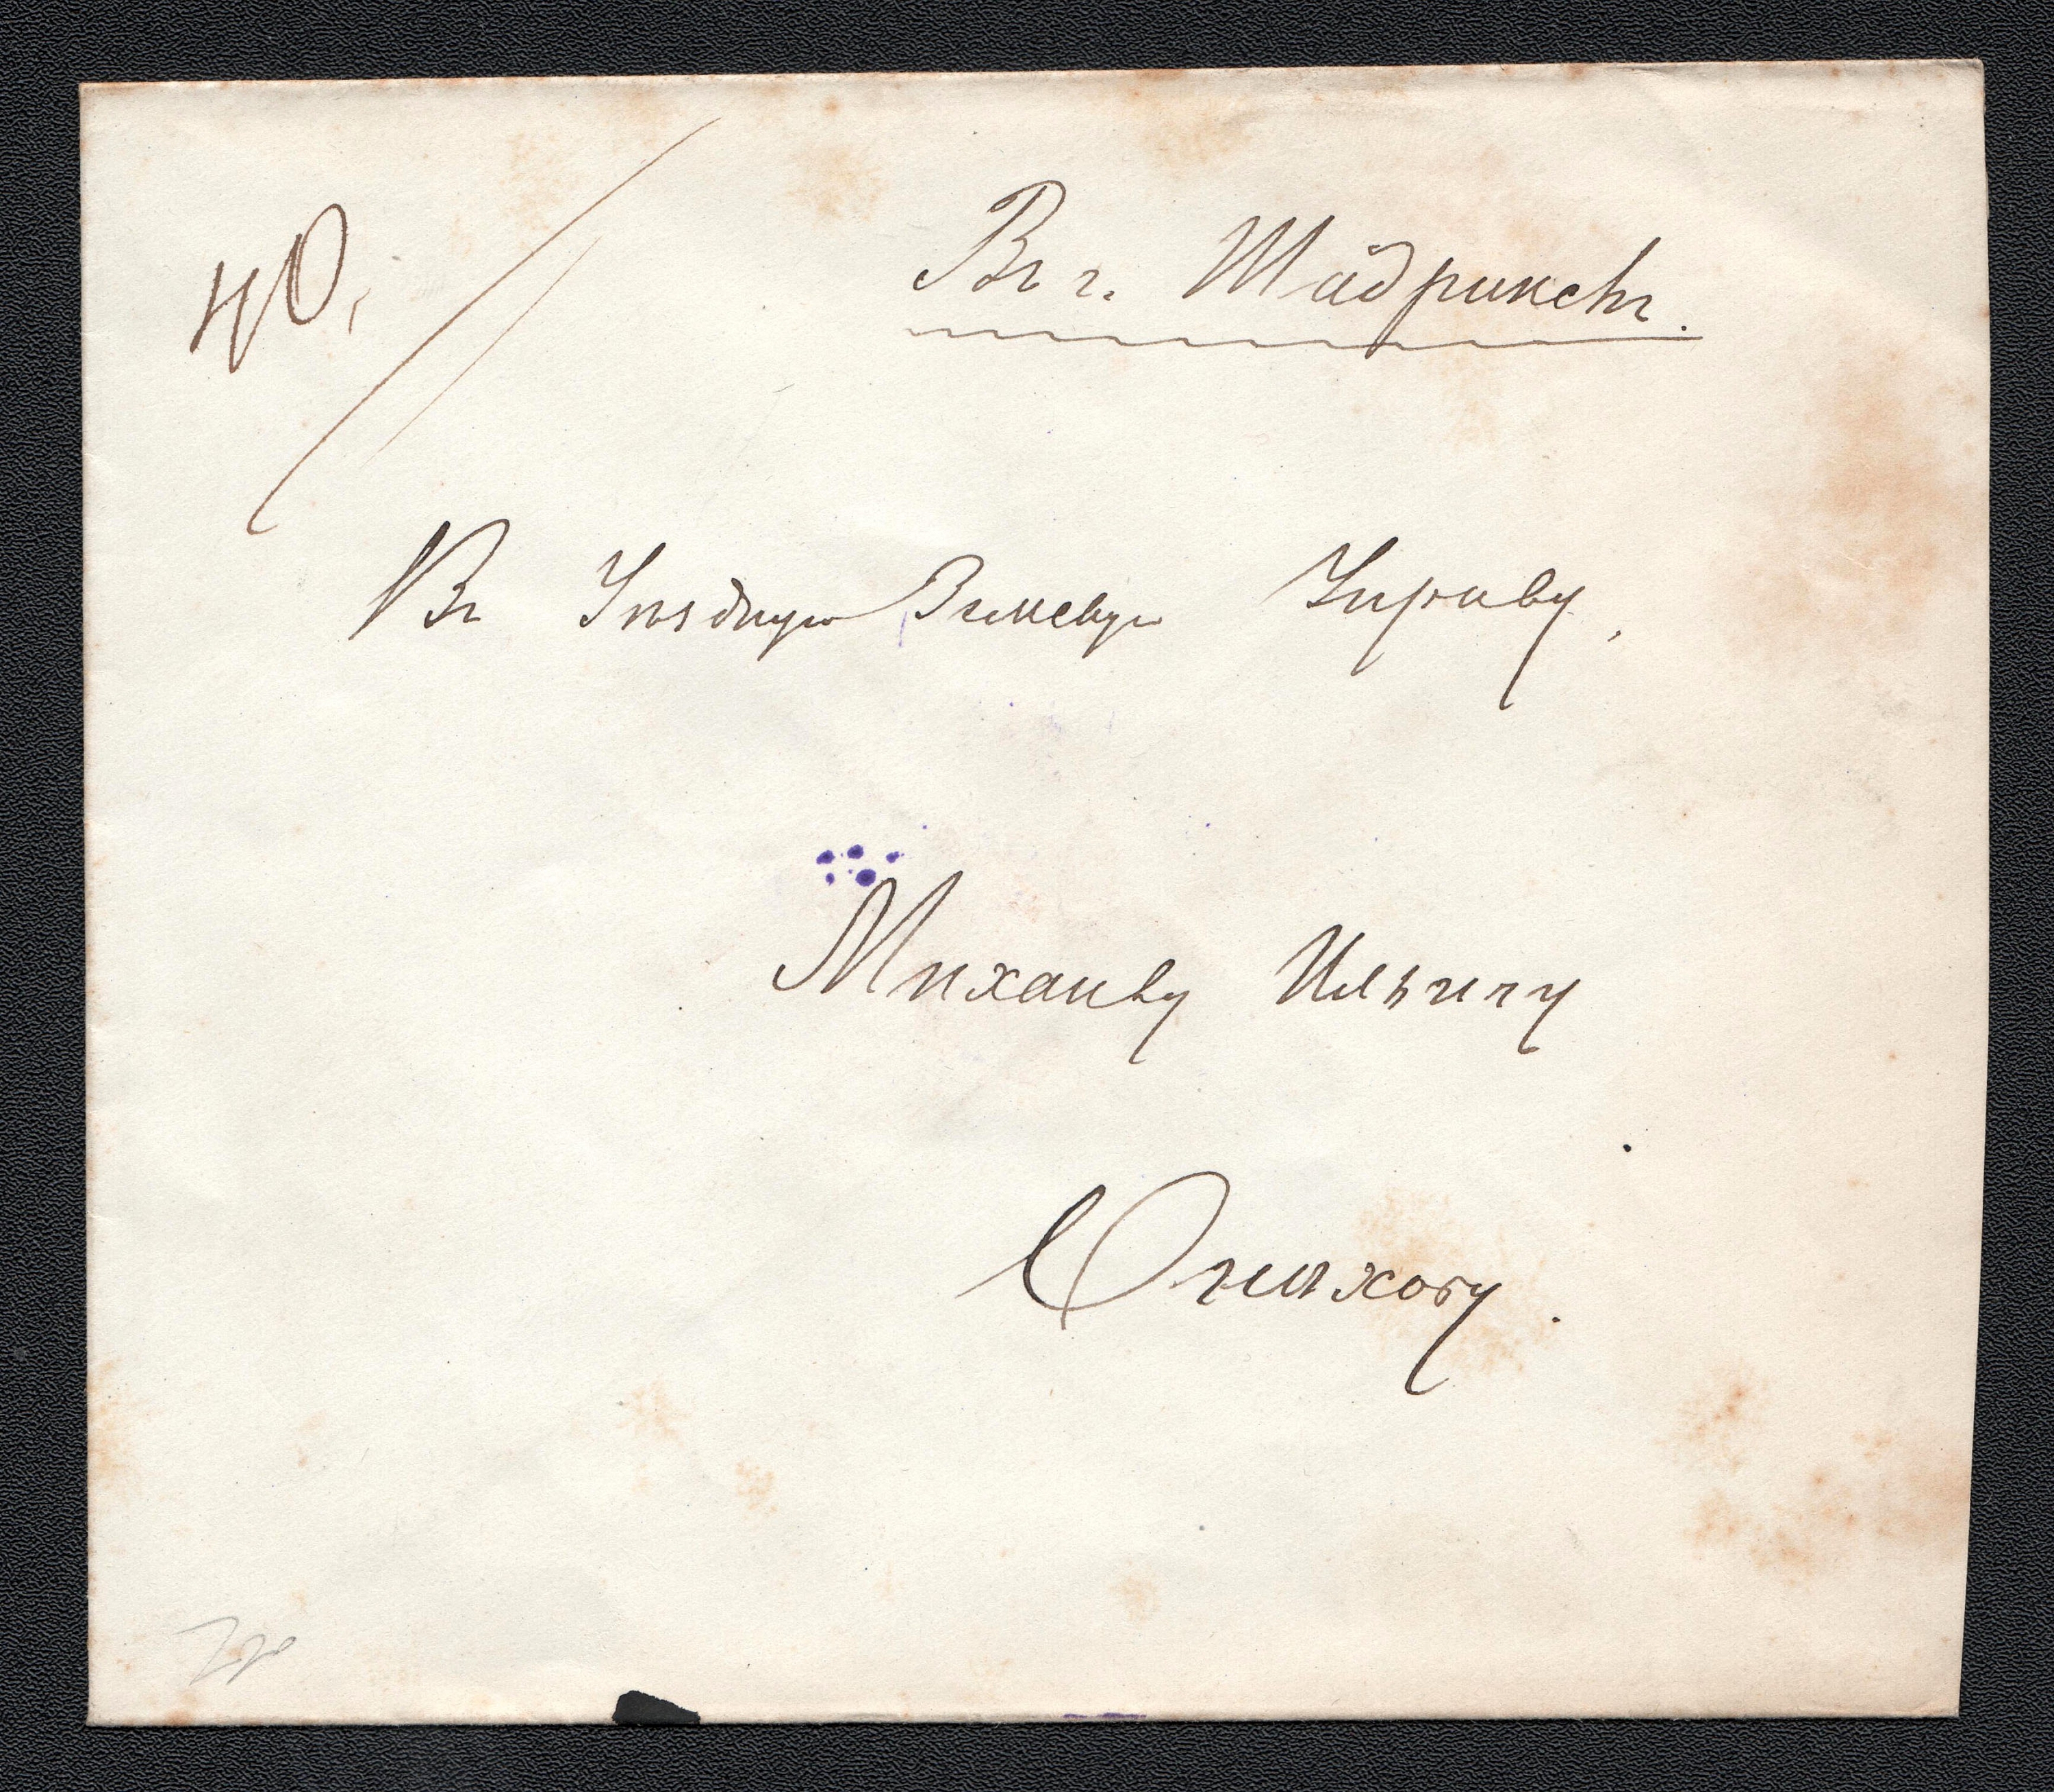 40,
Въ г. Шадринскъ.
Въ Уѣздную Земскую Управу,
Михаилу Ильичу